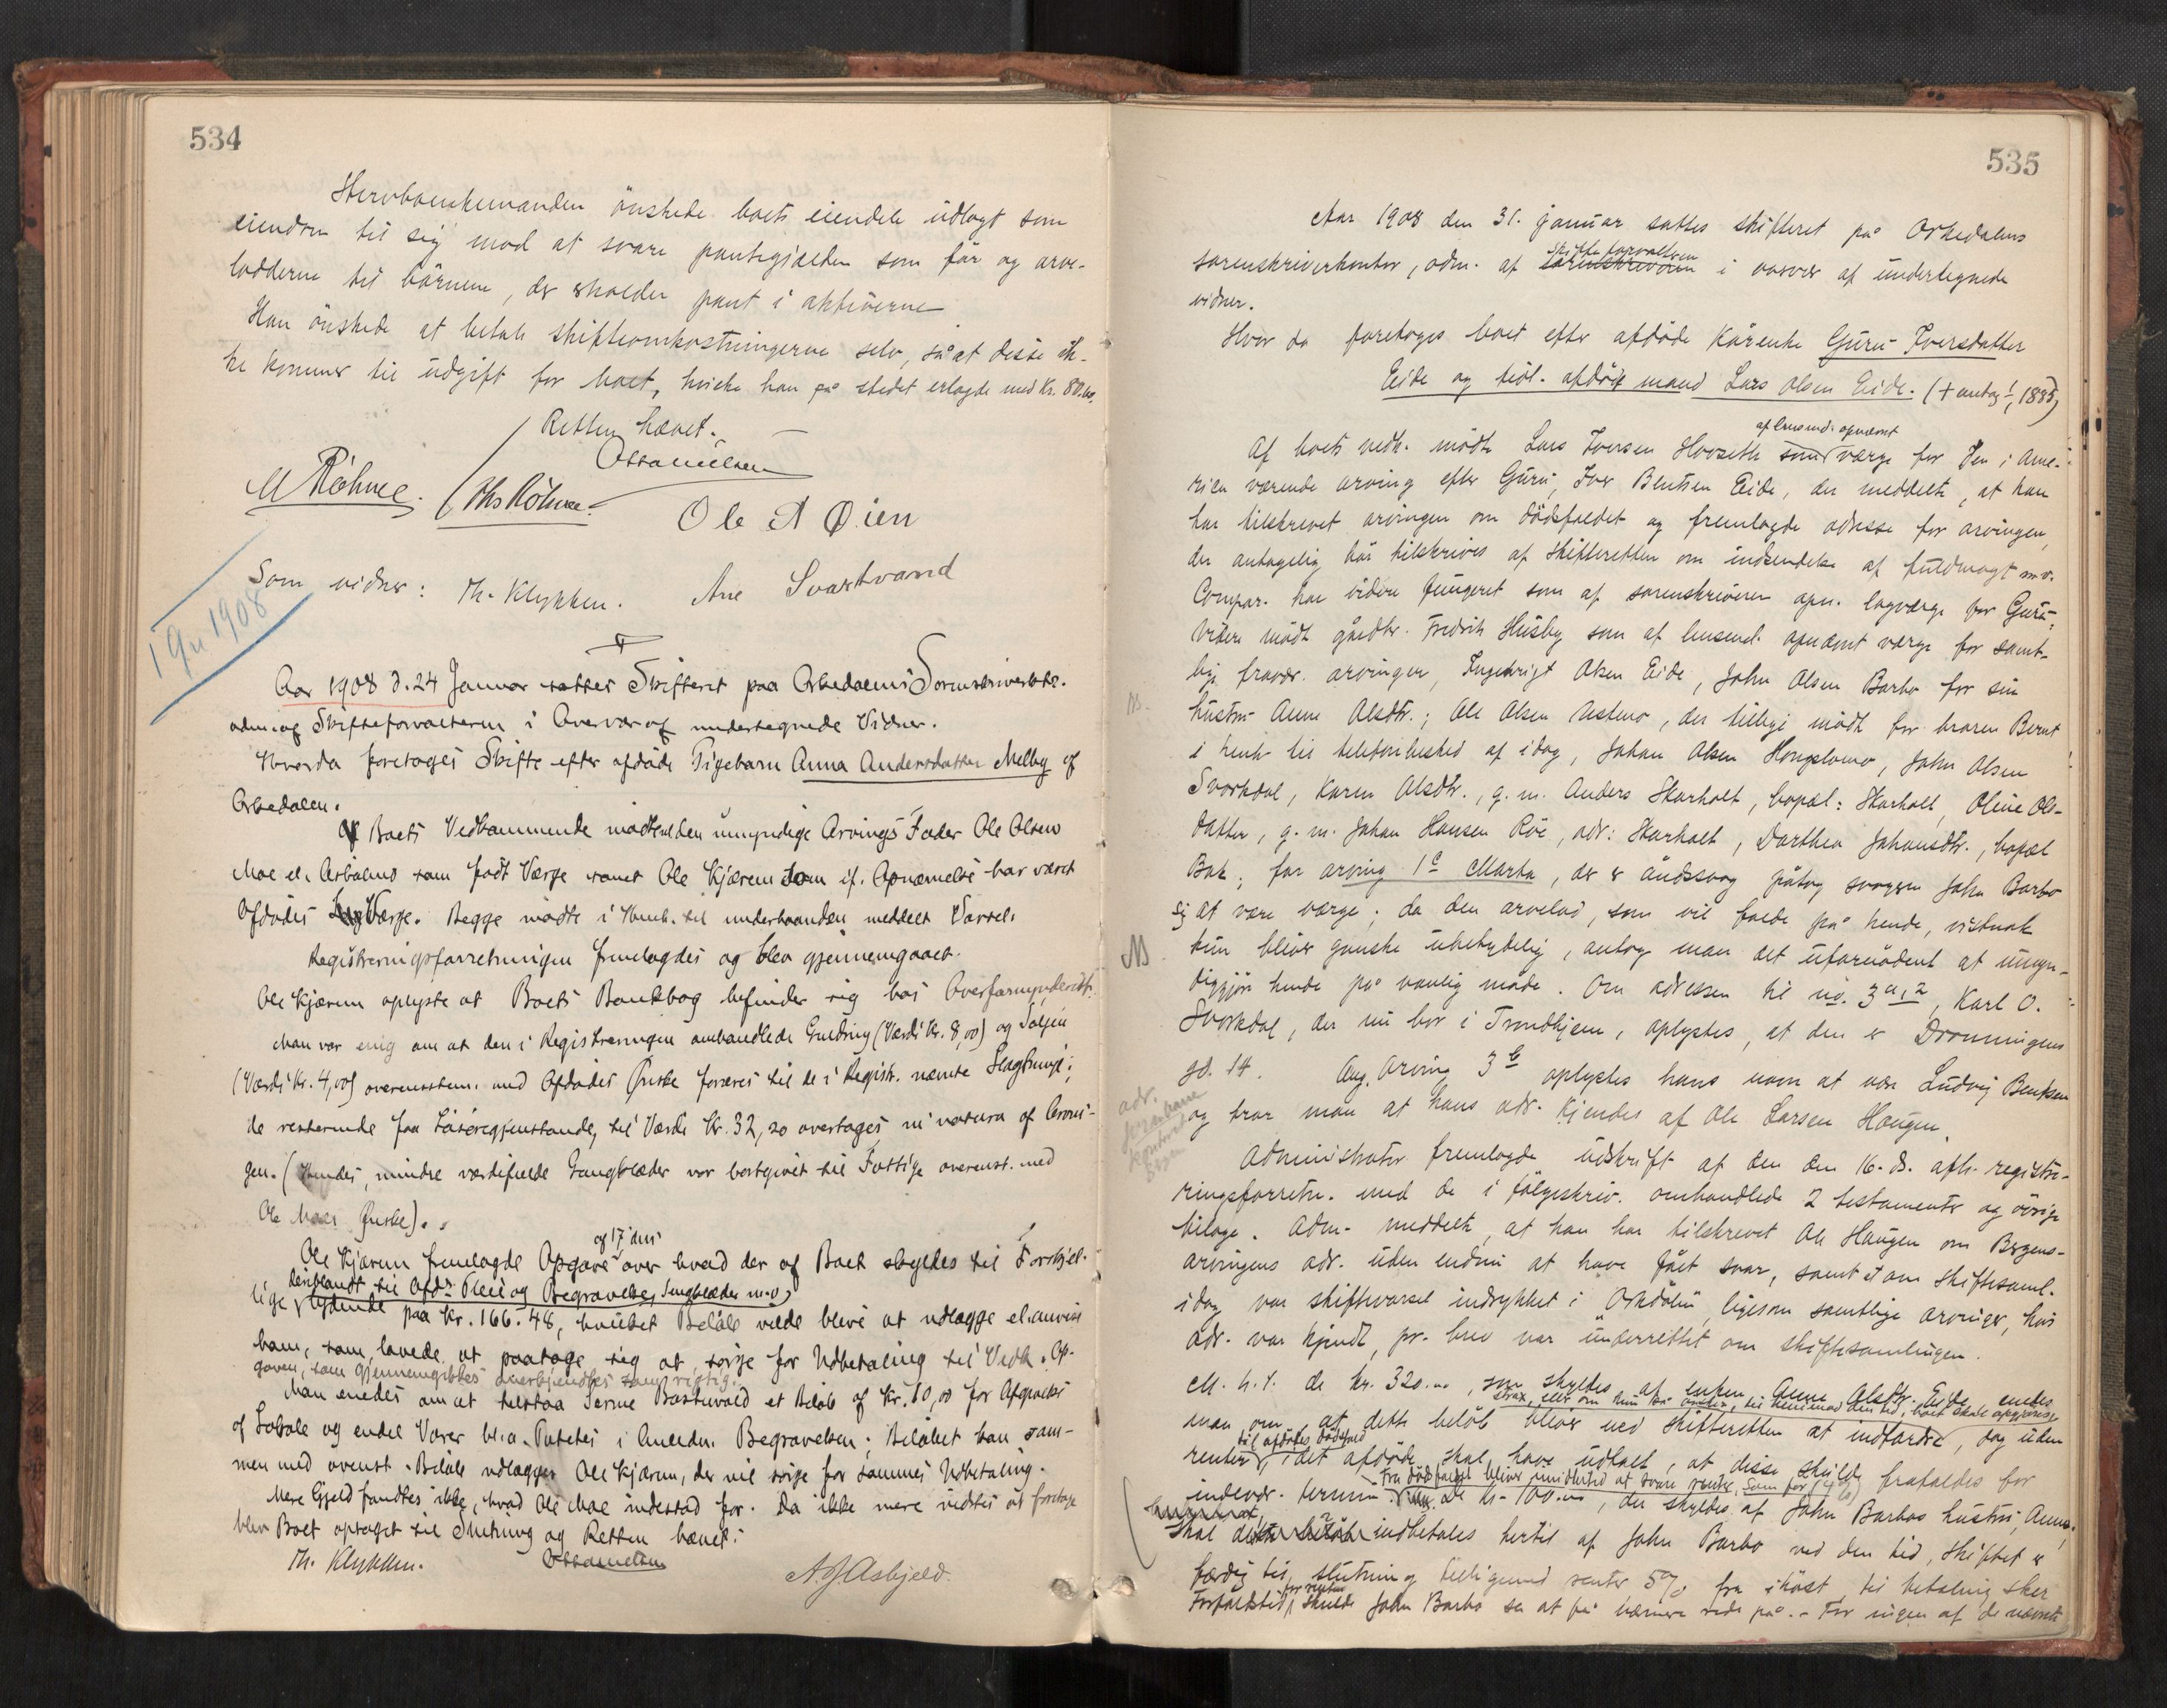 534
Stervboenkemanden ønskede boets eiendele udlagt som
eiendom til sig mod at svare pantegjælden som før og arve-
lodderne til børnene, der erholder pant i aktiverne
Han ønskede at betale skifteomkostningerne selv, så at disse ik-
ke kommer til udgift for boet, hvilke han på stedet erlagde med Kr. 80.00.
Retten hævet.
M Röhme. Ths Röhme.
Ole A Øien
Som vidner: Th. Klykken. Ane Svartvand
19/11 1908
Aar 1908 d. 24 Januar sattes Skifteret paa Orkedalens Sorenskriverktr.
adm. af Skifteforvalteren i Overvær af undertegnede Vidner.
Hvorda foretoges Skifte efter afdøde Pigebarn Anna Andersdatter Melby af
Orkedalen.
Af Boets Vedkommende mødte den umyndige Arvings Fader Ole Olsen
Moe som født Værge samt Ole Kjærem som if. Opnævnelse har været
Afdødes Værge. Begge mødte i Henh. til underhaanden meddelt Varsel.
Registreringsforretningen fremlagdes og blev gjennemgaaet.
Ole Kjærem oplyste at Boets Bankbog befinder sig hos Overformynderiet.
Man var enig om at den i Registreringen omhandlede Guldring (Værdi Kr. 8,00) og Søljen
(Værdi Kr. 4,00) overensstem. med Afdødes Ønske foræres til de i Registr. nævnte Slægtninge;
de resterende faa Løsøregjenstande, til Værdi Kr. 32,20 overtages in natura af Arvin-
gen. (Hendes mindre værdifulde Gangklæder var bortgivet til Fattige overenst. med
Ole Moes Ønske).
af 17 dns
Ole Kjærem fremlagde Opgave over hvad der af Boet skyldes til Forskjel-
deriblandt til Afd.s Pleie og Begravelse, Sengklæder m.v.
lige, lydende paa Kr. 166.48, hvilket Beløb vilde blive at udlægge el. anvise
ham, som lovede at paatage sig at sørge for Udbetaling til Vedk. Op-
gaven, som gjennemgikkes anerkjendtes som rigtig.
Man enedes om at tilstaa Serine Bostuvold et Beløb af Kr. 10,00 for Afgivelse
af Lokale og endel Varer bl.a. Poteter i Anledn. Begravelsen; Beløbet kan sam-
men med ovenst. Beløb udlægges Ole Kjærem, der vil sørge for sammes Udbetaling.
Mere Gjeld fandtes ikke, hvad Ole Moe indestod for. Da ikke mere vidtes at foretage
blev Boet optaget til Slutning og Retten hævet.
Th. Klykken. A. J. Asbjeld.
535
Aar 1908 den 31. januar sattes skifteret på Orkedalens
skifteforvalteren
sorenskriverkontor, adm. af sorenskriveren i overvær af undertegnede
vidner.
Hvor da foretoges boet efter afdøde kårenke Guru Iversdatter
Eide og tidl. afdøde mand Lars Olsen Eide. (+ antag 1885)
af lensmd. opnævnt
Af boets vedk. mødte Lars Iversen Hovseth som værge for den i Ame-
rica værende arving efter Guru, Iver Bentsen Eide, der meddelte, at han
har tilskrevet arvingen om dødsfaldet og fremlagde adresse for arvingen,
der antagelig bør tilskrives af skifteretten om indsendelse af fuldmagt m.v.
Compar. har videre fungeret som af sorenskriveren opn. lagværge for Guru.
Videre mødte gårdbr. Fredrik Husby som af lensmd. opnævnt værge for samt-
lig fravær. arvinger, Ingebrigt Olsen Eide, John Olsen Barbo for sin
hustru Anne Olsdtr.; Ole Olsen Ustmo, der tillige mødte for broren Bernt
i henh. til telefonbesked af idag, Johan Olsen Hongslomo, John Olsen
Svorkdal, Karen Olsdtr., g. m. Anders Skarholt, bopæl: Skarholt, Oline Ols-
datter, g. m. Johan Hansen Röe, adr: Skarholt, Dorthea Johansdtr., bopæl
Bak; for arving 1c Marta, der er åndssvag påtog svogeren John Barbo
sig at være værge; da den arvelod, som vil falde på hende, vistnok
NB
kun bliver ganske ubetydelig, antog man det ufornødent at umyn-
diggjøre hende på vanlig måde. Om adressen til no. 3a,2, Karl O.
Svorkdal, der nu bor i Trondhjem, oplystes, at den er Dronningens
gd. 14. Ang. arving 3b oplystes hans navn at være Ludvig Bentsen
og tror man at hans adr. kjendes af Ole Larsen Haugen.
Administrator fremlagde udskrift af den den 16. ds. afh. registre-
ringsforretn. med de i følgeskriv. omhandlede 2 testamenter og øvrige
bilage. Adm. meddelte, at han har tilskrevet Ole Haugen om Bergens-
arvingens adr. uden endnu at have fået svar, samt at om skiftesaml.
idag var skiftevarsel indrykket i Orkdølen, ligesom samtlige arvinger, hvis
adr. var kjendt, pr. brev var underrettet om skiftesamlingen.
M. h. t. de kr. 320.00, som skyldes af enken Anne Olsdtr. Eide, enedes
man om, at dette beløb bliver ved skifteretten at indfordre, dog uden
til afdødes dødsfald
renter, idet afdøde skal have udtalt, at disse skulde frafaldes for
Fra dødsfaldet bliver imidlertid at svare renter, som før (4%)
indevær. termin. de kr. 100.00, der skyldes af John Barbos hustru, Anne,
skal indbetales hertil af John Barbo ved den tid, skiftet er
færdig til slutning tilligemed renter 5% fra ihøst til betaling sker
for renten
Forfaldstid skulde John Barbo se at få nærmere rede på. - For ingen af de nævnte